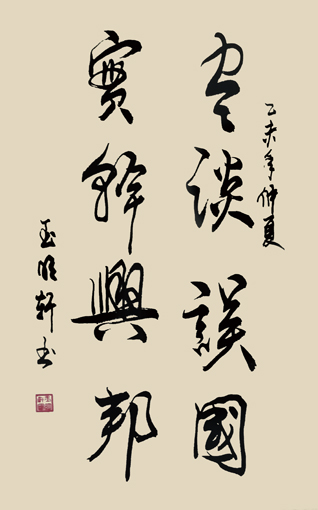 乙未年仲夏
空談誤國
實幹興邦
玉明軒書